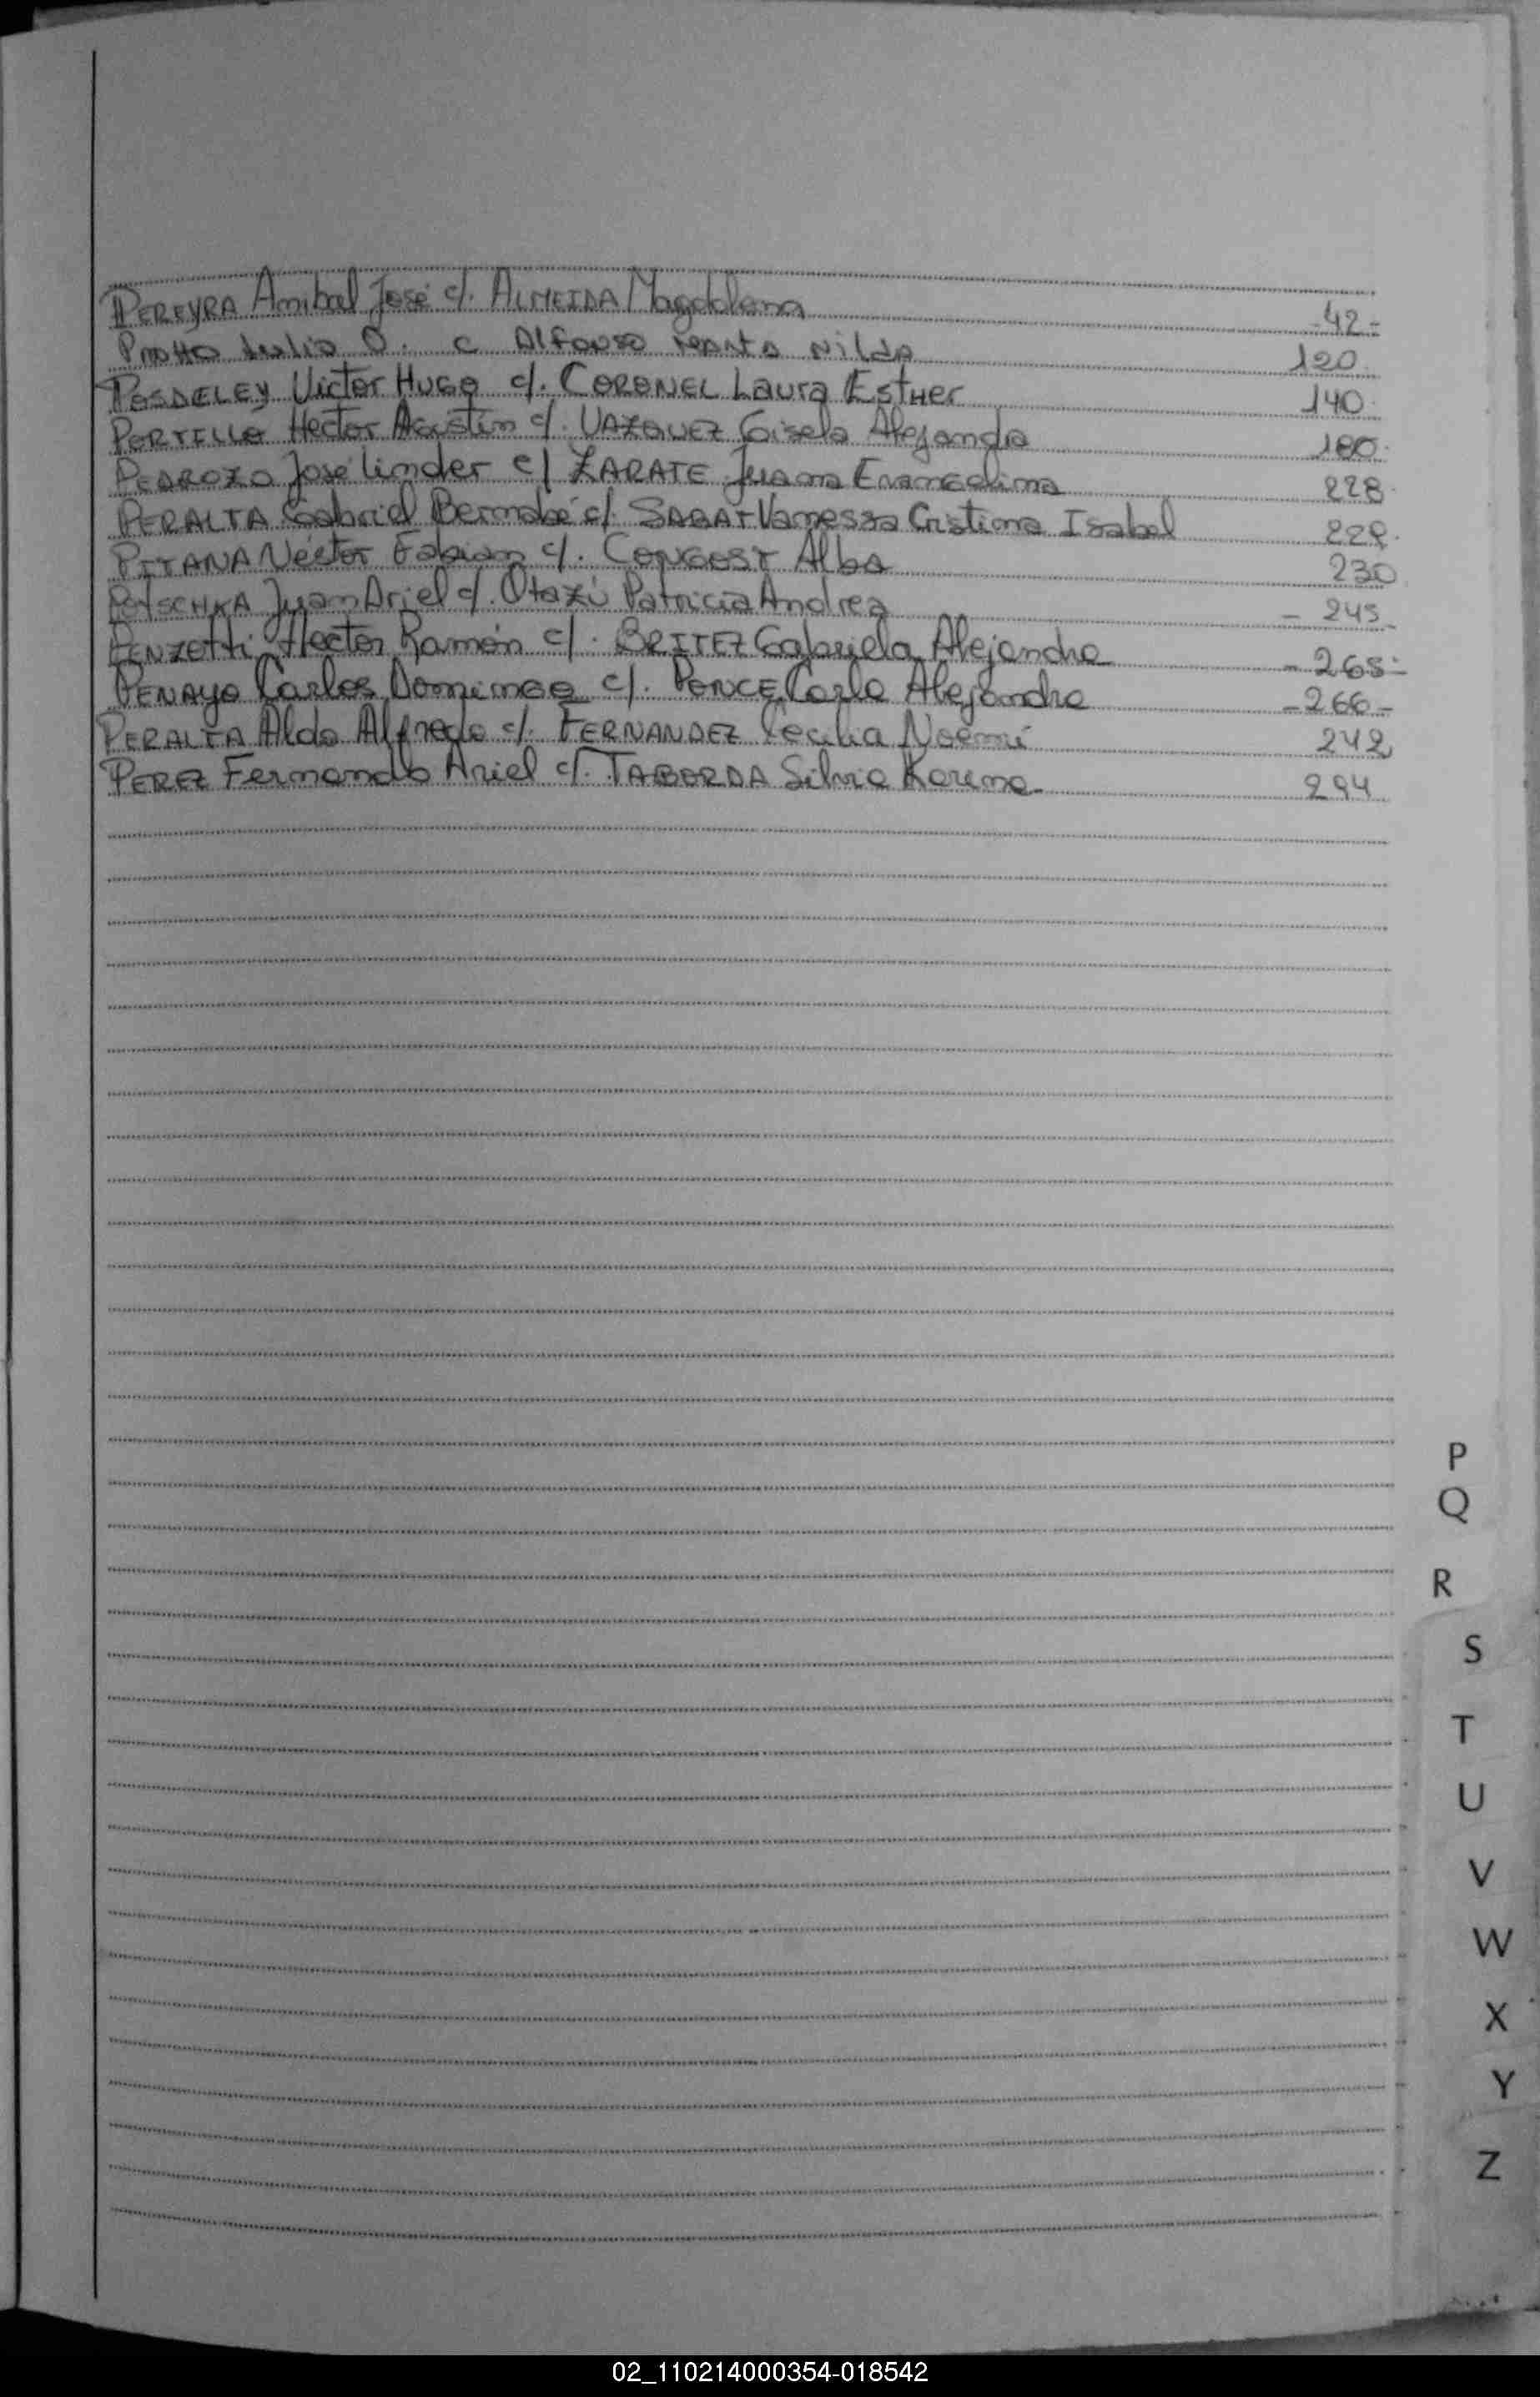 PEREYRA Anibal José c/. ALMEIDA Magdalena -42-
Julio O. c Alfonso Marta Nilda 120
POSDELEY Victor HUGO c/. CORONEL Laura EstHer 140
PORTILLO Hector Agustin c/. VAZQUEZ Gisela Alejandra 180
PEDROZO José Linder c/ ZARATE Juana Evangelina 228
PERALTA Gabriel Bernabé c/. SABAT Vanessa Cristina Isabel 229
PITANA Néstor Fabian c/. CONGOST Alba 230
POTSCHKA Juan Ariel c/. Otazú Patricia Andrea - 245 -
PENZETTI Hector Ramón c/. BRITEZ Gabriela Alejandra - 265 -
PENAYO Carlos Domingo c/. PONCE Carla Alejandra - 266 -
PERALTA Aldo Alfredo c/. FERNANDEZ Cecilia Noemí 242
PEREZ Fernando Ariel c/. TABORDA Silvia Karina 294
P
Q
R
S
T
U
V
W
X
Y
Z
02_110214000354-018542